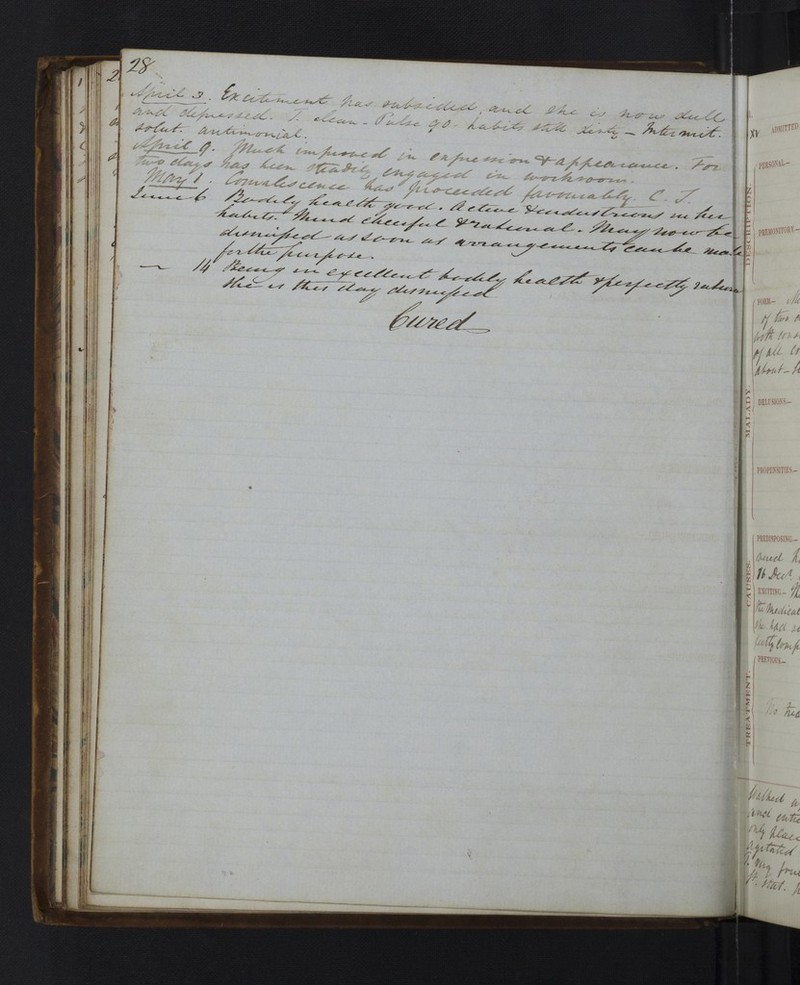 28
April 3. Excitement has subsided, and she is now dull
and depressed. T. clean - Pulse 90. habits still dirty - Intermit.
solut. antimonial.
April 9. Much improved in expression & appearance. For
two days has been steadily engaged in workroom.
May 1. Convalescence has proceeded favourably. C. T.
June 6 Bodily health good. Active & industrious in her
habits. Mind cheerful & rational. May now be
dismissed as soon as arrangements can be made
for the purpose.
— 14 Being in excellent bodily health & perfectly
She is this day dismissed
Cured
XV
ADMITTED
DESCRIPTION.
PERSONAL—
PREMONITORY—
MALADY.
FORM—
of two
of all
about
DELUSIONS—
PROPENSITIES—
CAUSES.
PREDISPOSING—
16 Decr.
EXCITING—
the medical
had
TREATMENT.
PREVIOUS—
No
and
only place
agitated
T. very